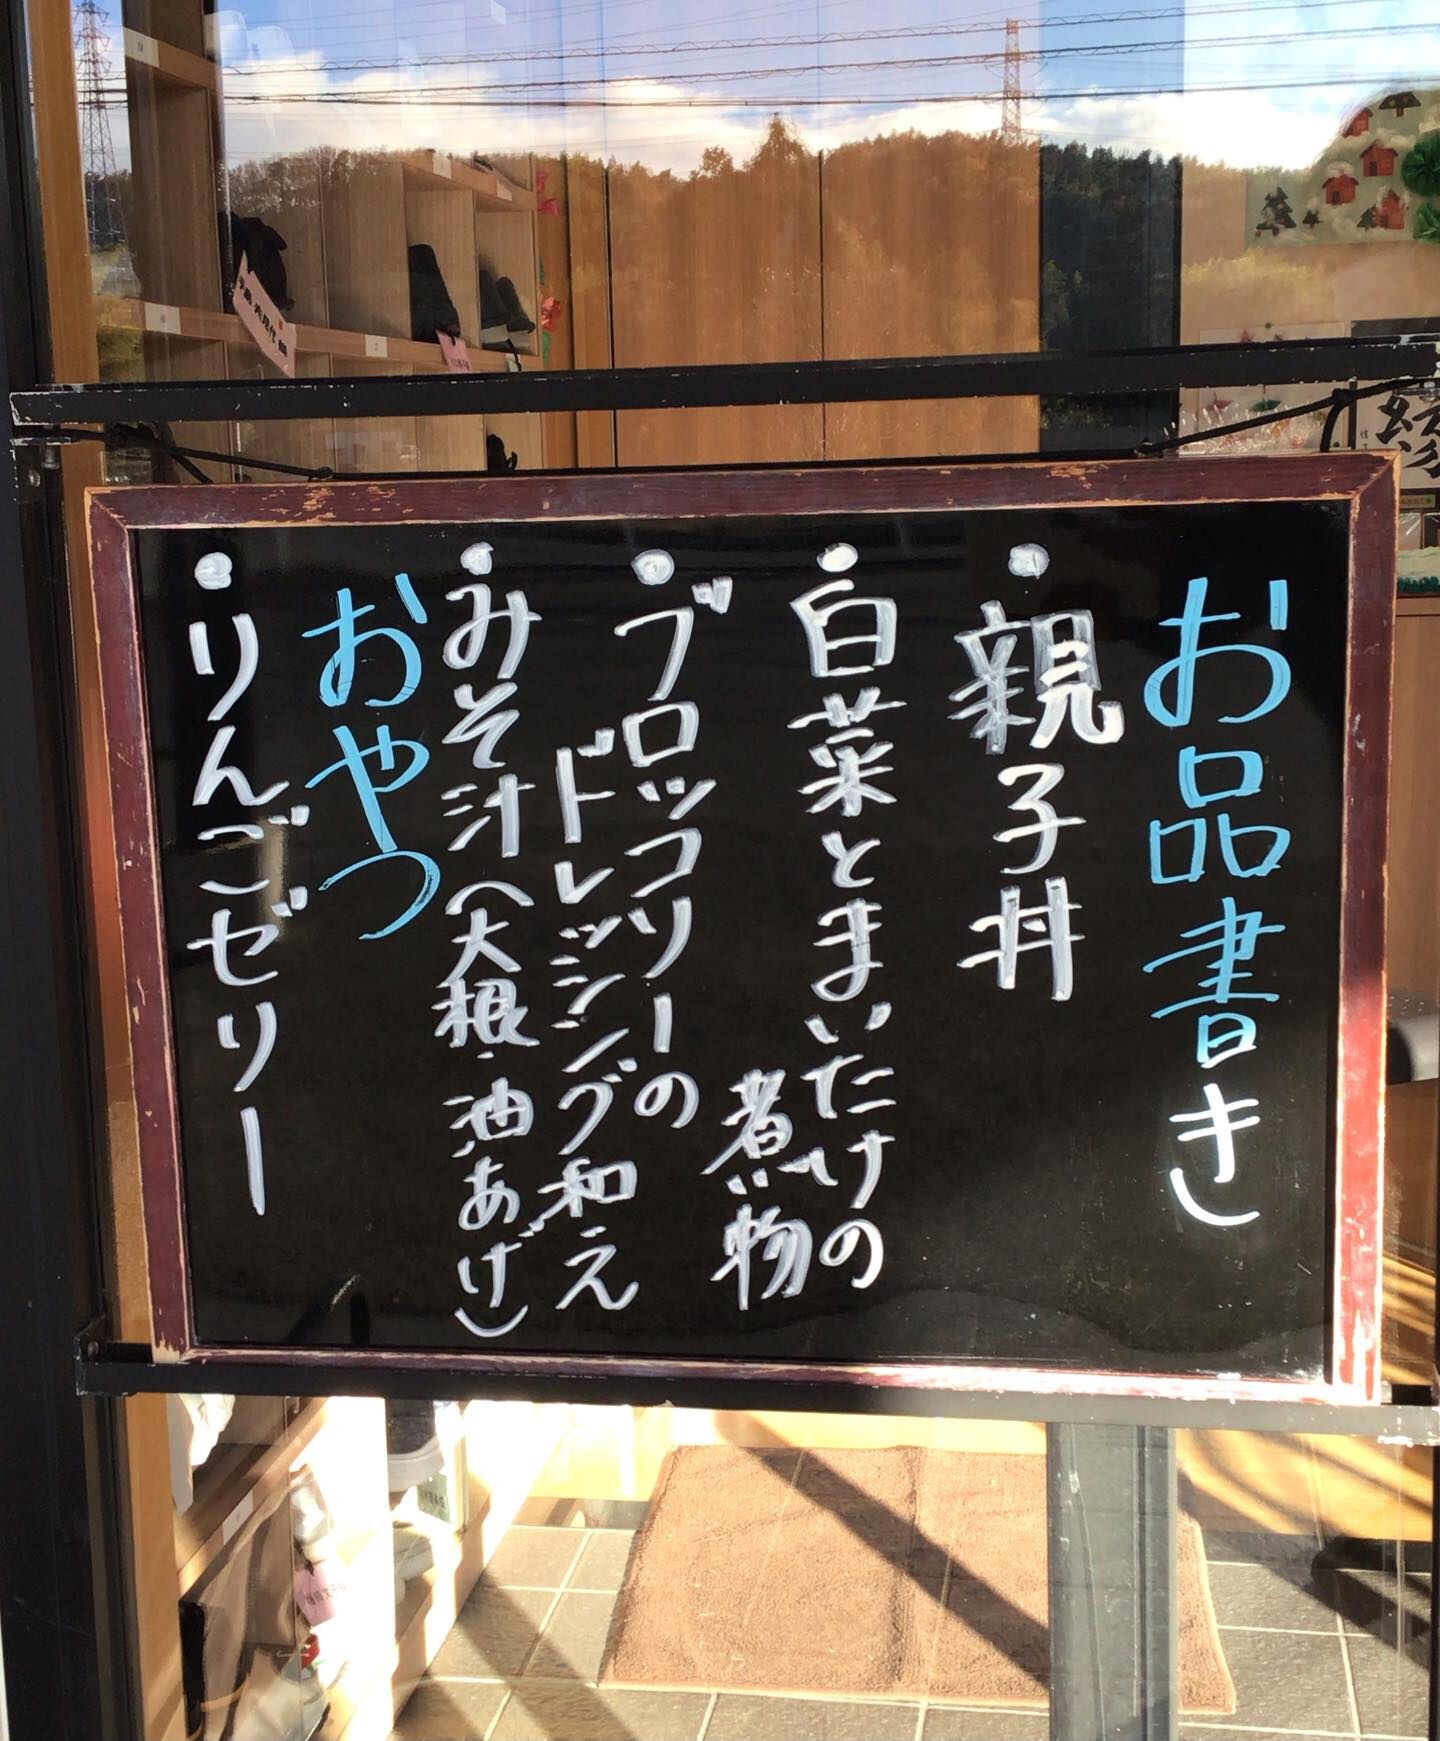 お品書き
・親子丼
・白菜とまいたけの
煮物
・ブロッコリーの
ドレッシング和え
・みそ汁(大根・油あげ)
おやつ
・りんごゼリー